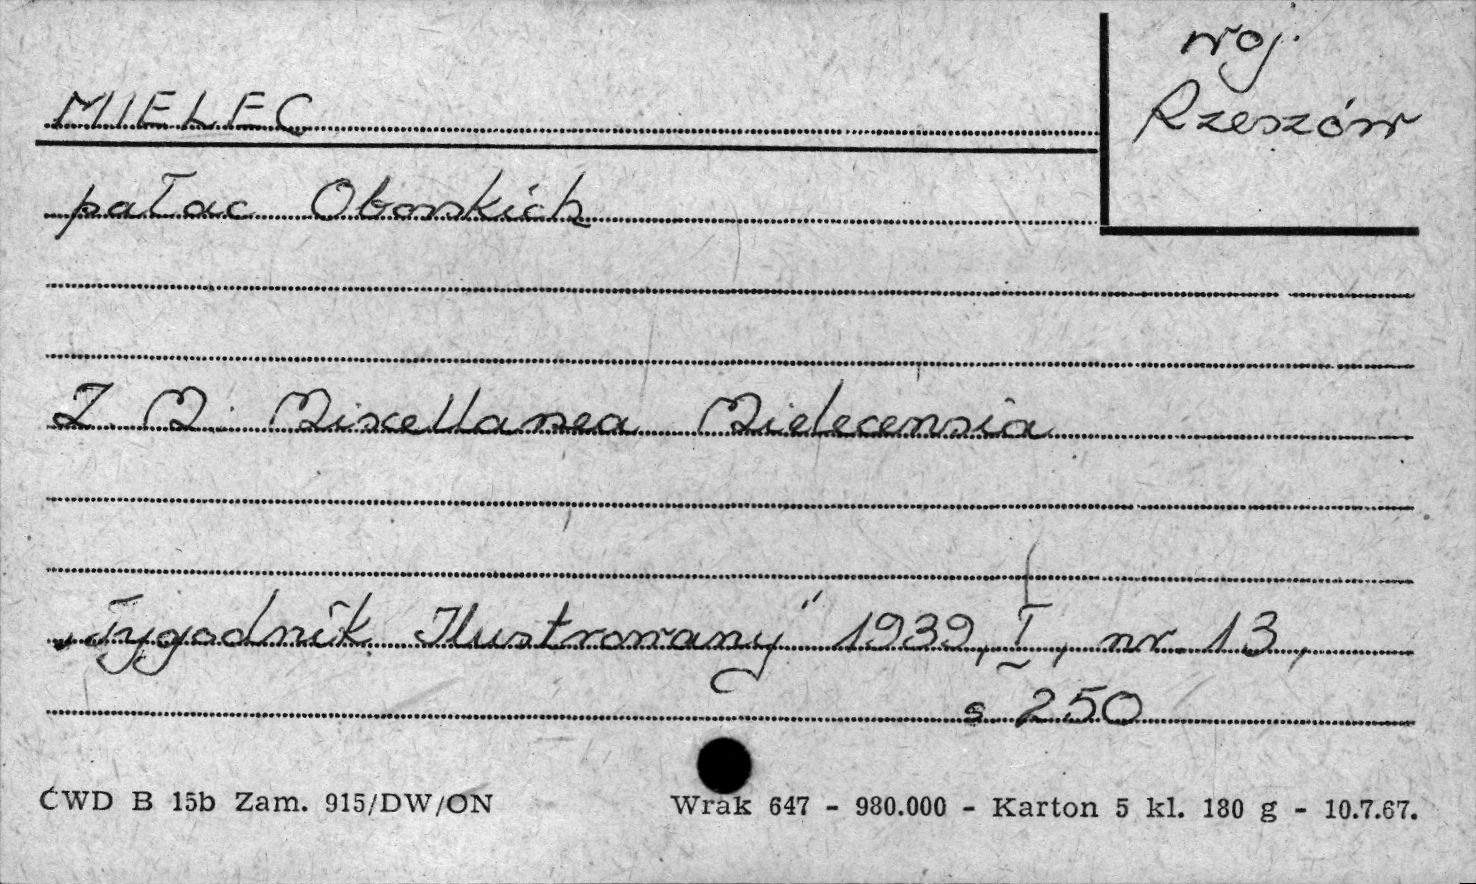 woj.
Rzeszów
MIELEC
pałac Oborskich
Z. M. Miscellanea Mielecensia
„Tygodnik Ilustrowany" 1939, I, nr. 13,
s 250
CWD B 15b Zam. 915/DW/ON
Wrak 647 - 980.000 - Karton 5 kl. 180 g - 10.7.67.